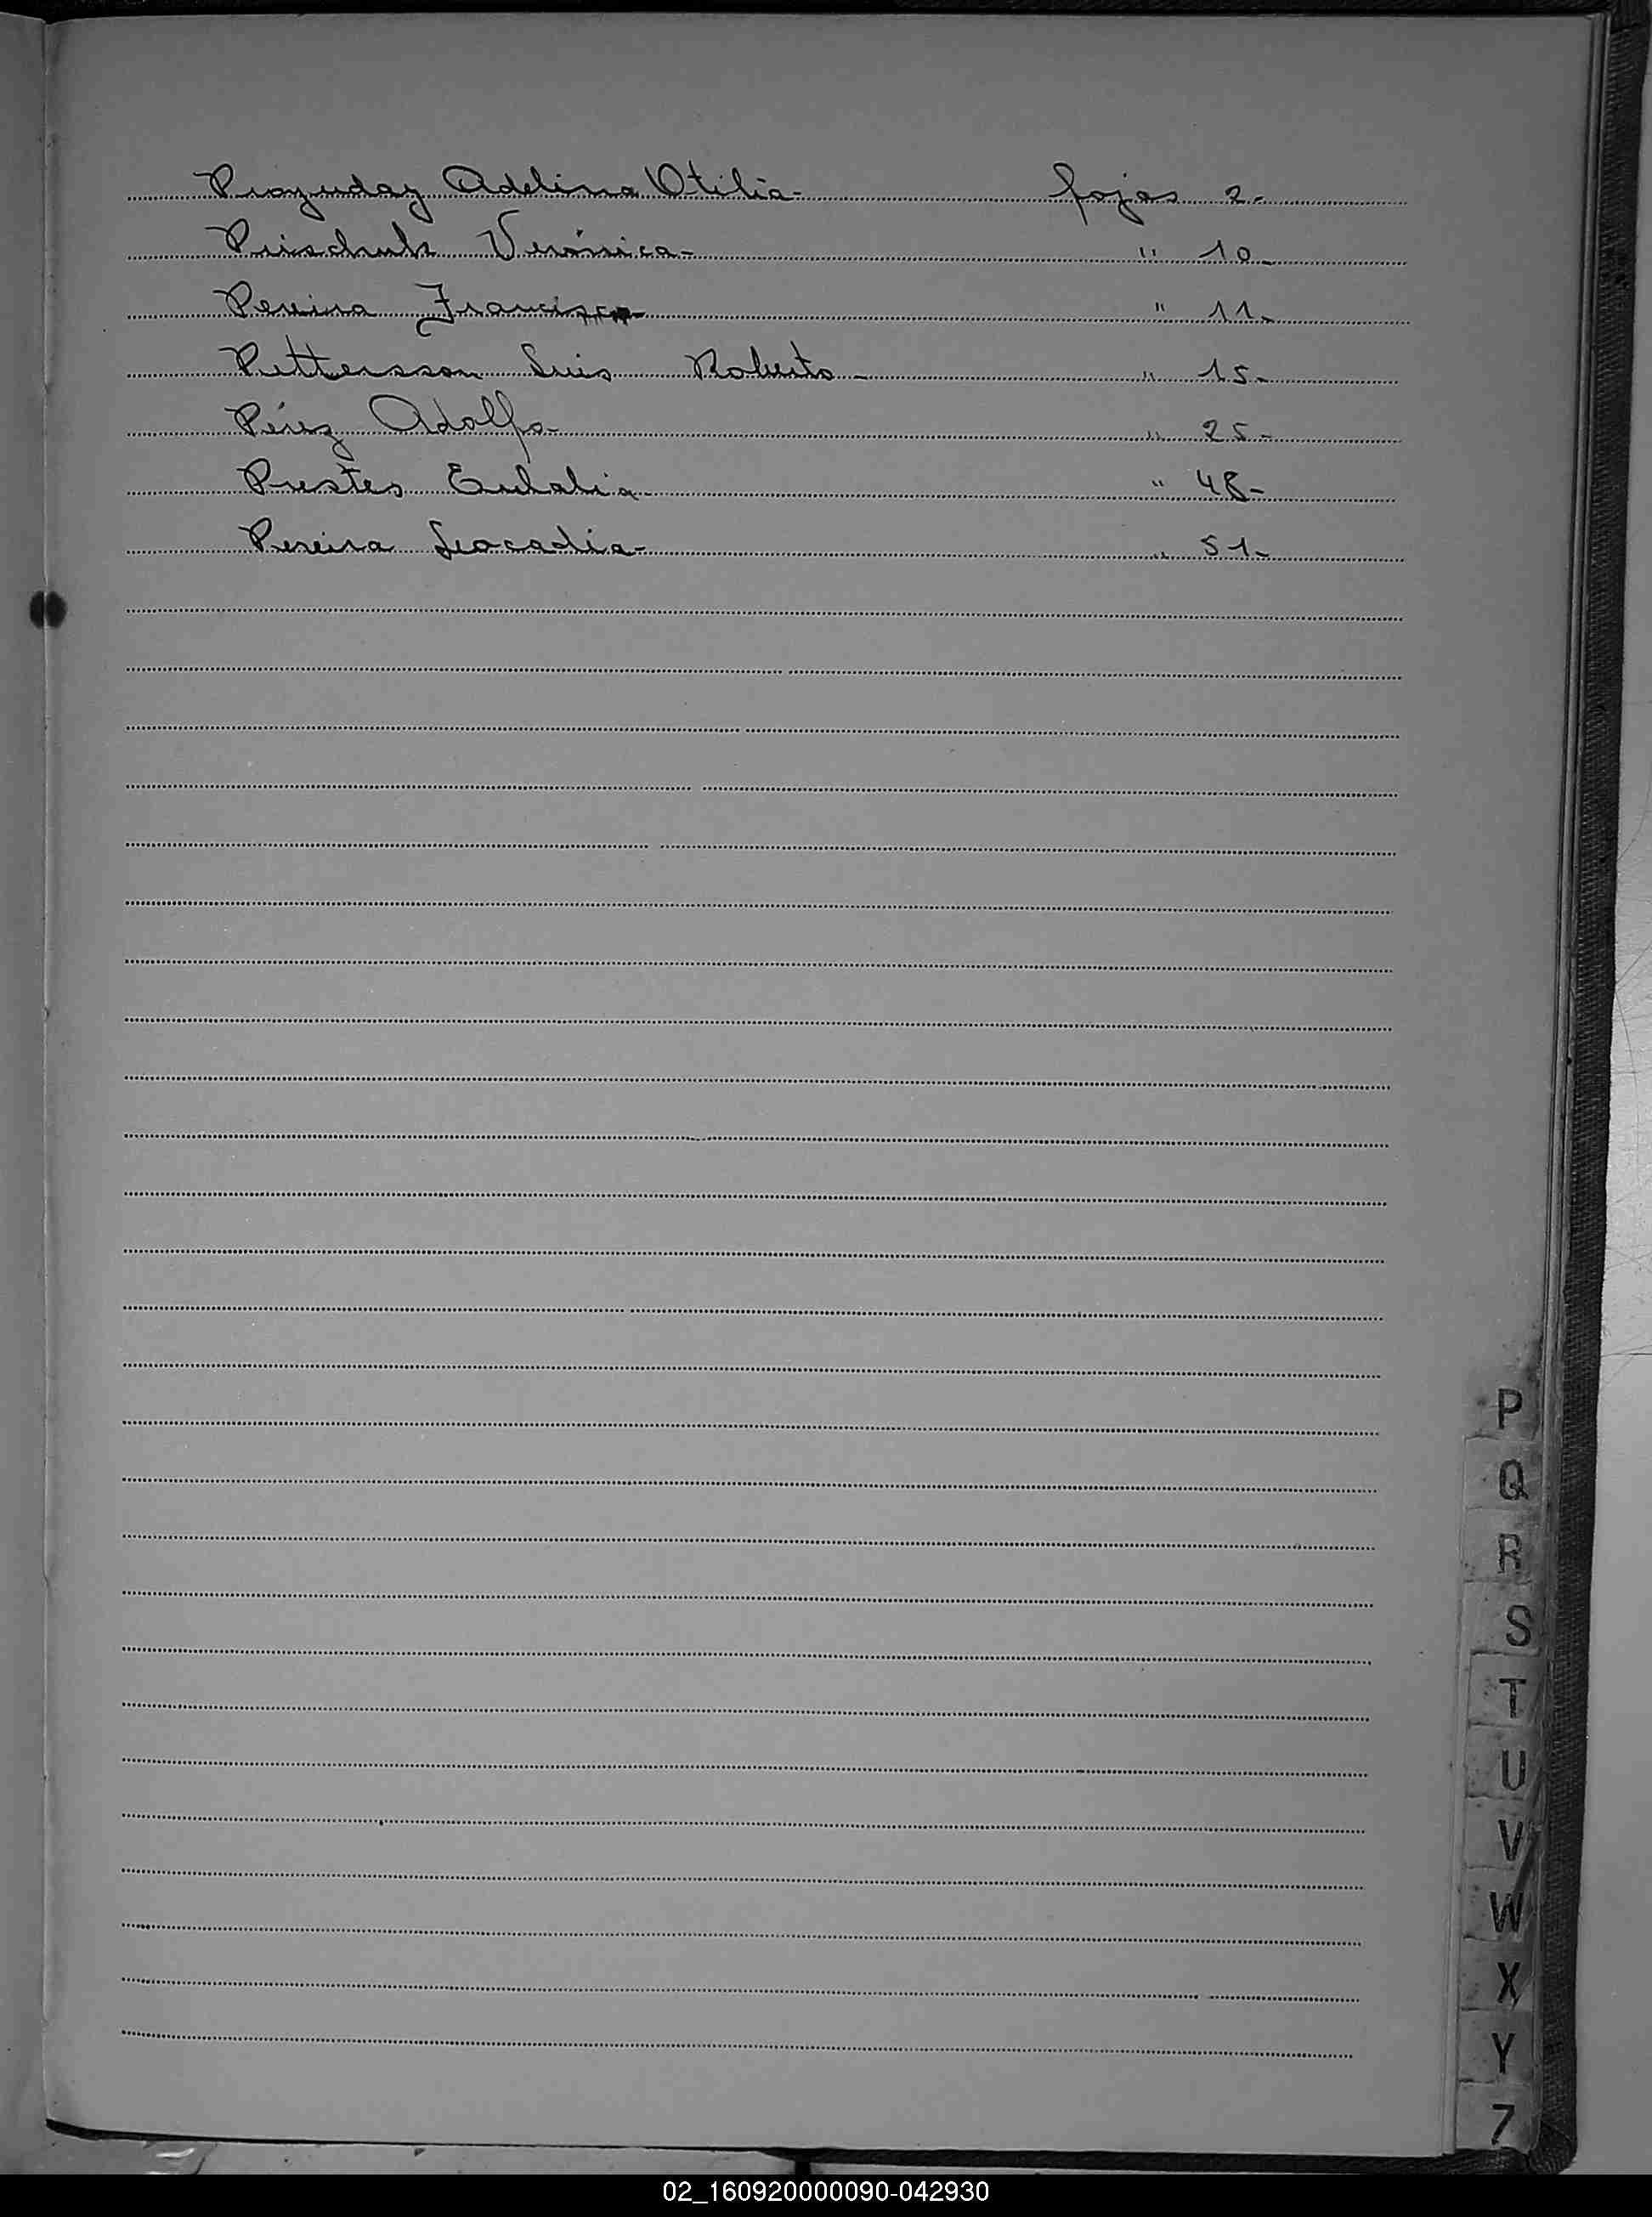 Adelina Otilia- fojas 2-
Verónica- " 10-
Pereira Francisco " 11-
Pettersson Luis Roberto- " 15-
Pérez Adolfo- " 25-
Prestes Eulalia- " 48-
Pereira Leocadia- " 51-
P
Q
R
S
T
U
V
W
X
Y
Z
02_160920000090-042930